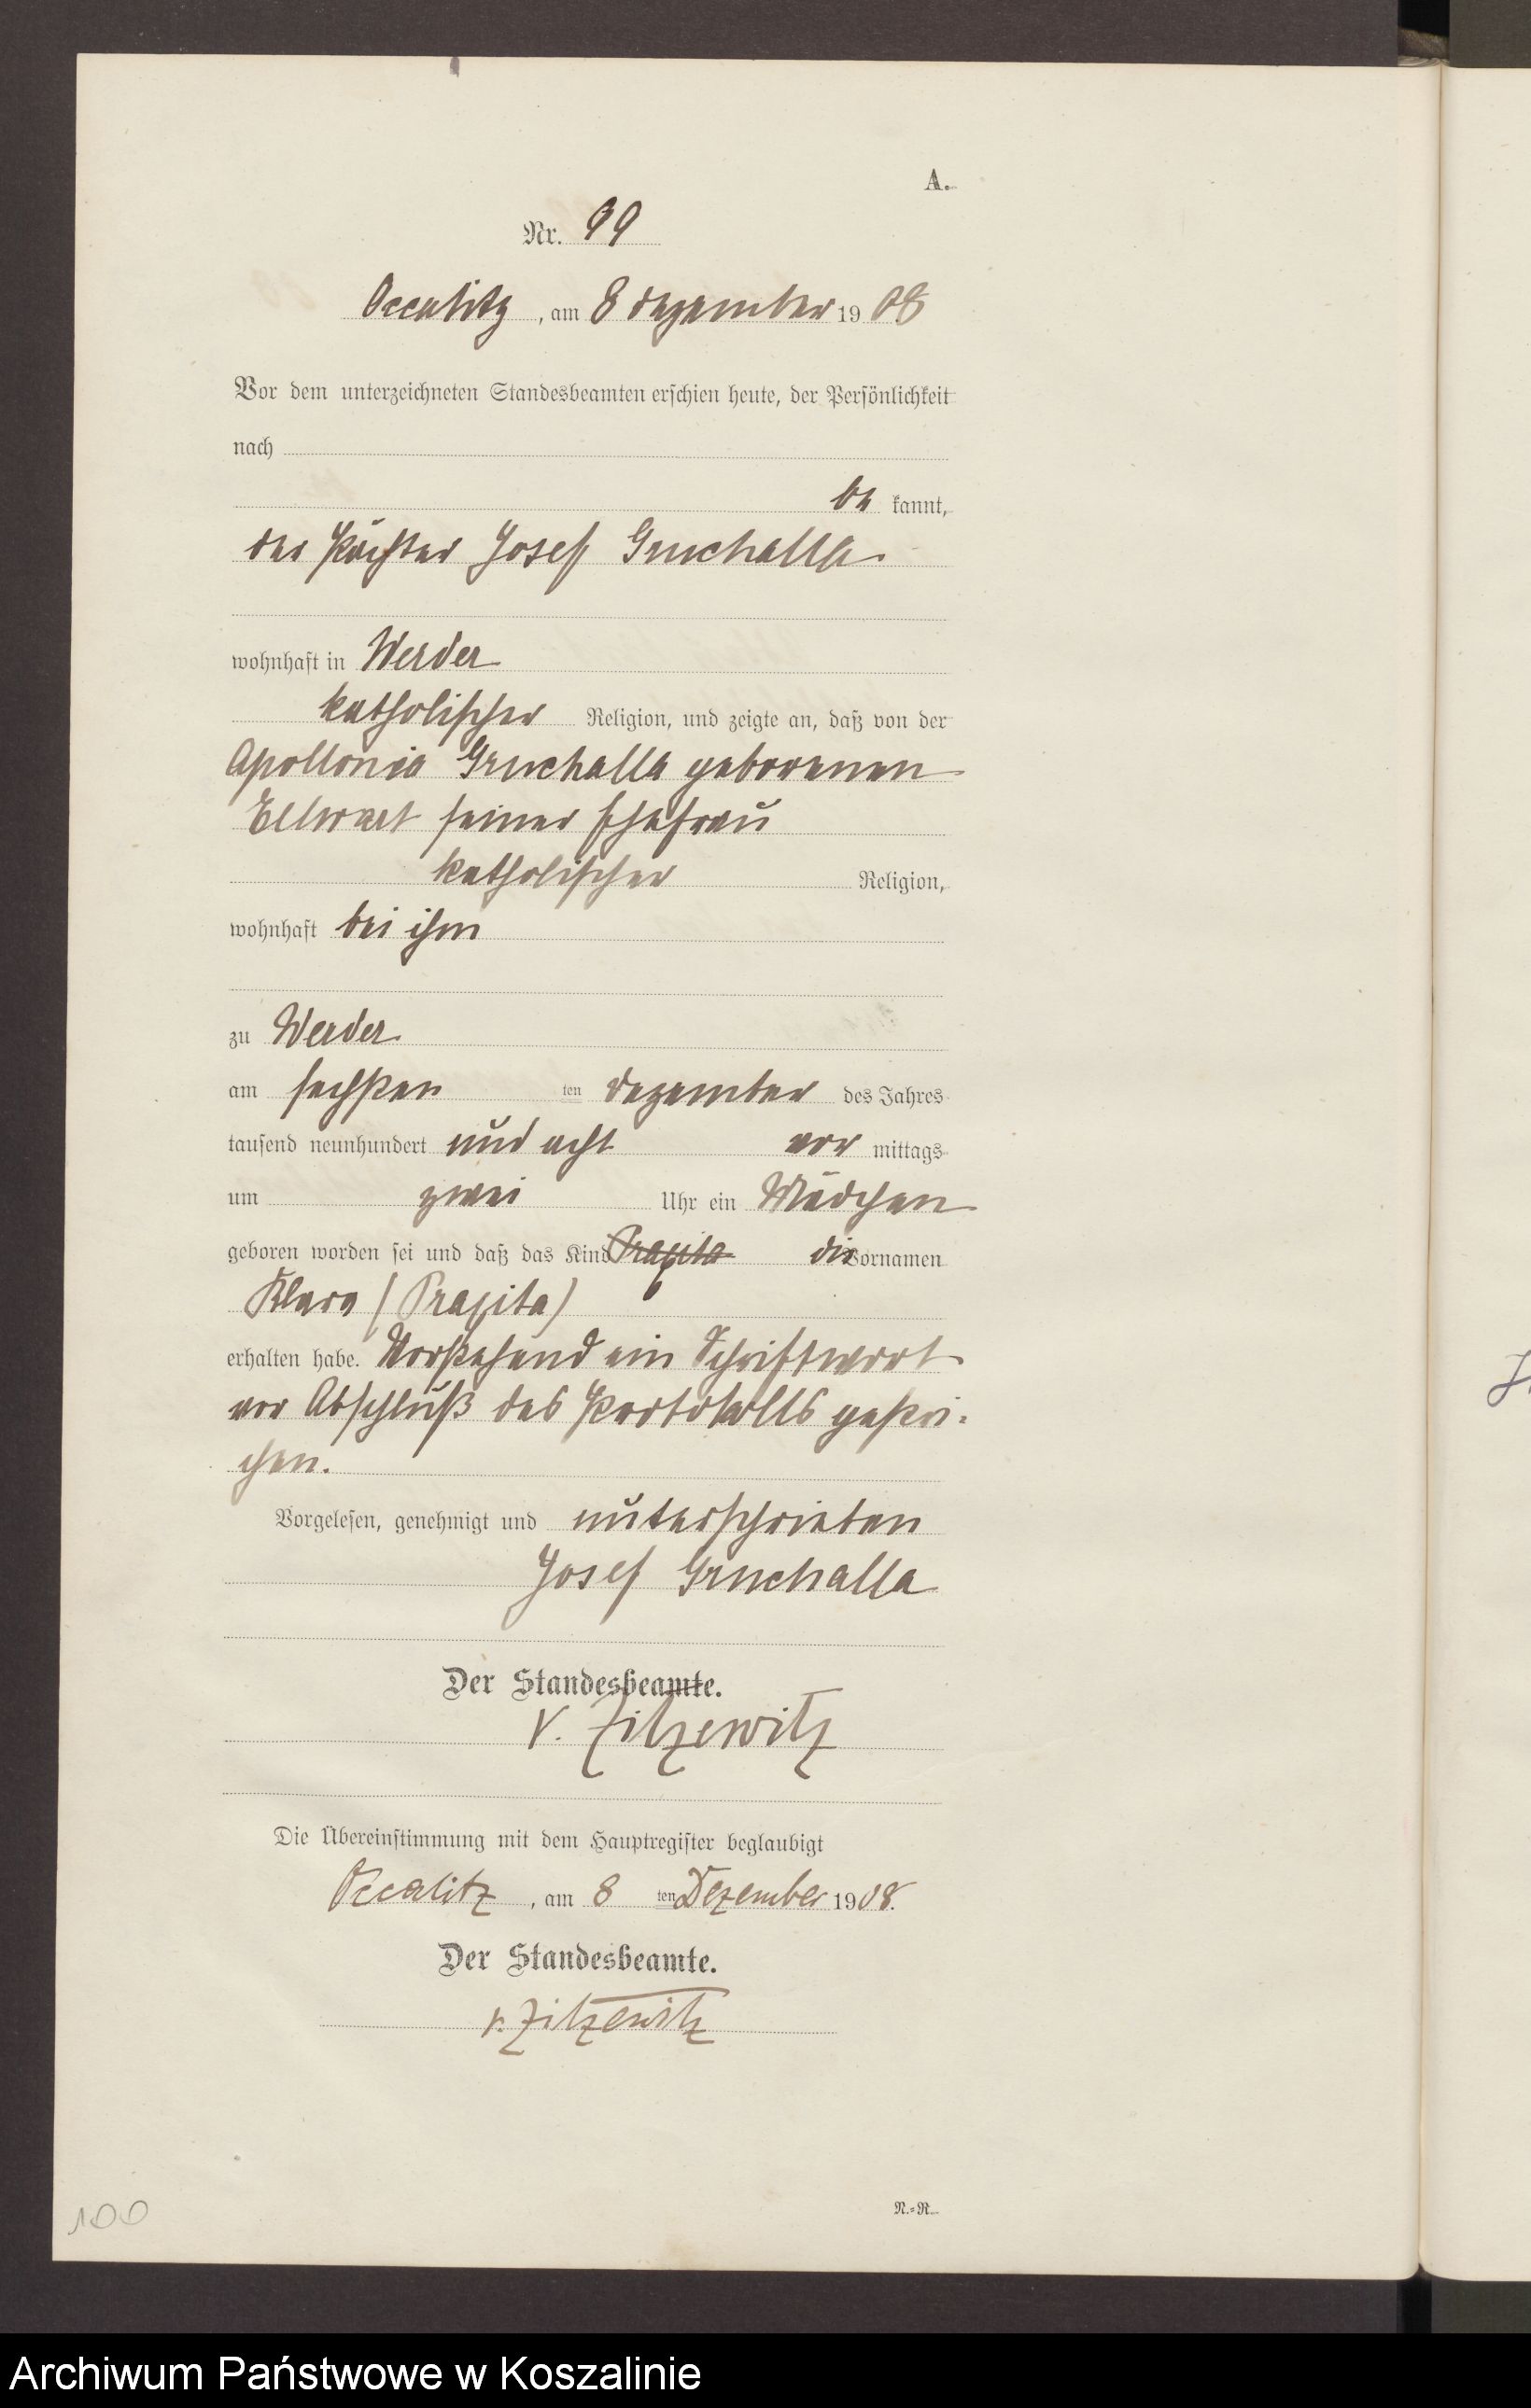 A.
Nr. 99
Occalitz, am 8 Dezember 1908
Vor dem unterzeichneten Standesbeamten erschien heute, der Persönlichkeit
nach
be kannt,
der Pächter Josef Gruchalla
wohnhaft in Werder
katholischer Religion, und zeigte an, daß von der
Apollonia Gruchalla geborenen
Ellwart seiner Ehefrau
katholischer Religion,
wohnhaft bei ihm
zu Werder
am sechsten ten Dezember des Jahres
tausend neunhundert und acht vor mittags
um zwei Uhr ein Mädchen
geboren worden sei und daß das Kind die Vornamen
Klara (Praxita)
erhalten habe. Vorstehend ein Schriftwort
vor Abschluß des Protokolls gestri-
chen.
Vorgelesen, genehmigt und unterschrieben
Josef Gruchalla
Der Standesbeamte.
v. Zitzewitz
Die Übereinstimmung mit dem Hauptregister beglaubigt
Occalitz, am 8 ten Dezember 1908.
Der Standesbeamte.
v. Zitzewitz
N.=R.
100
Archiwum Państwowe w Koszalinie